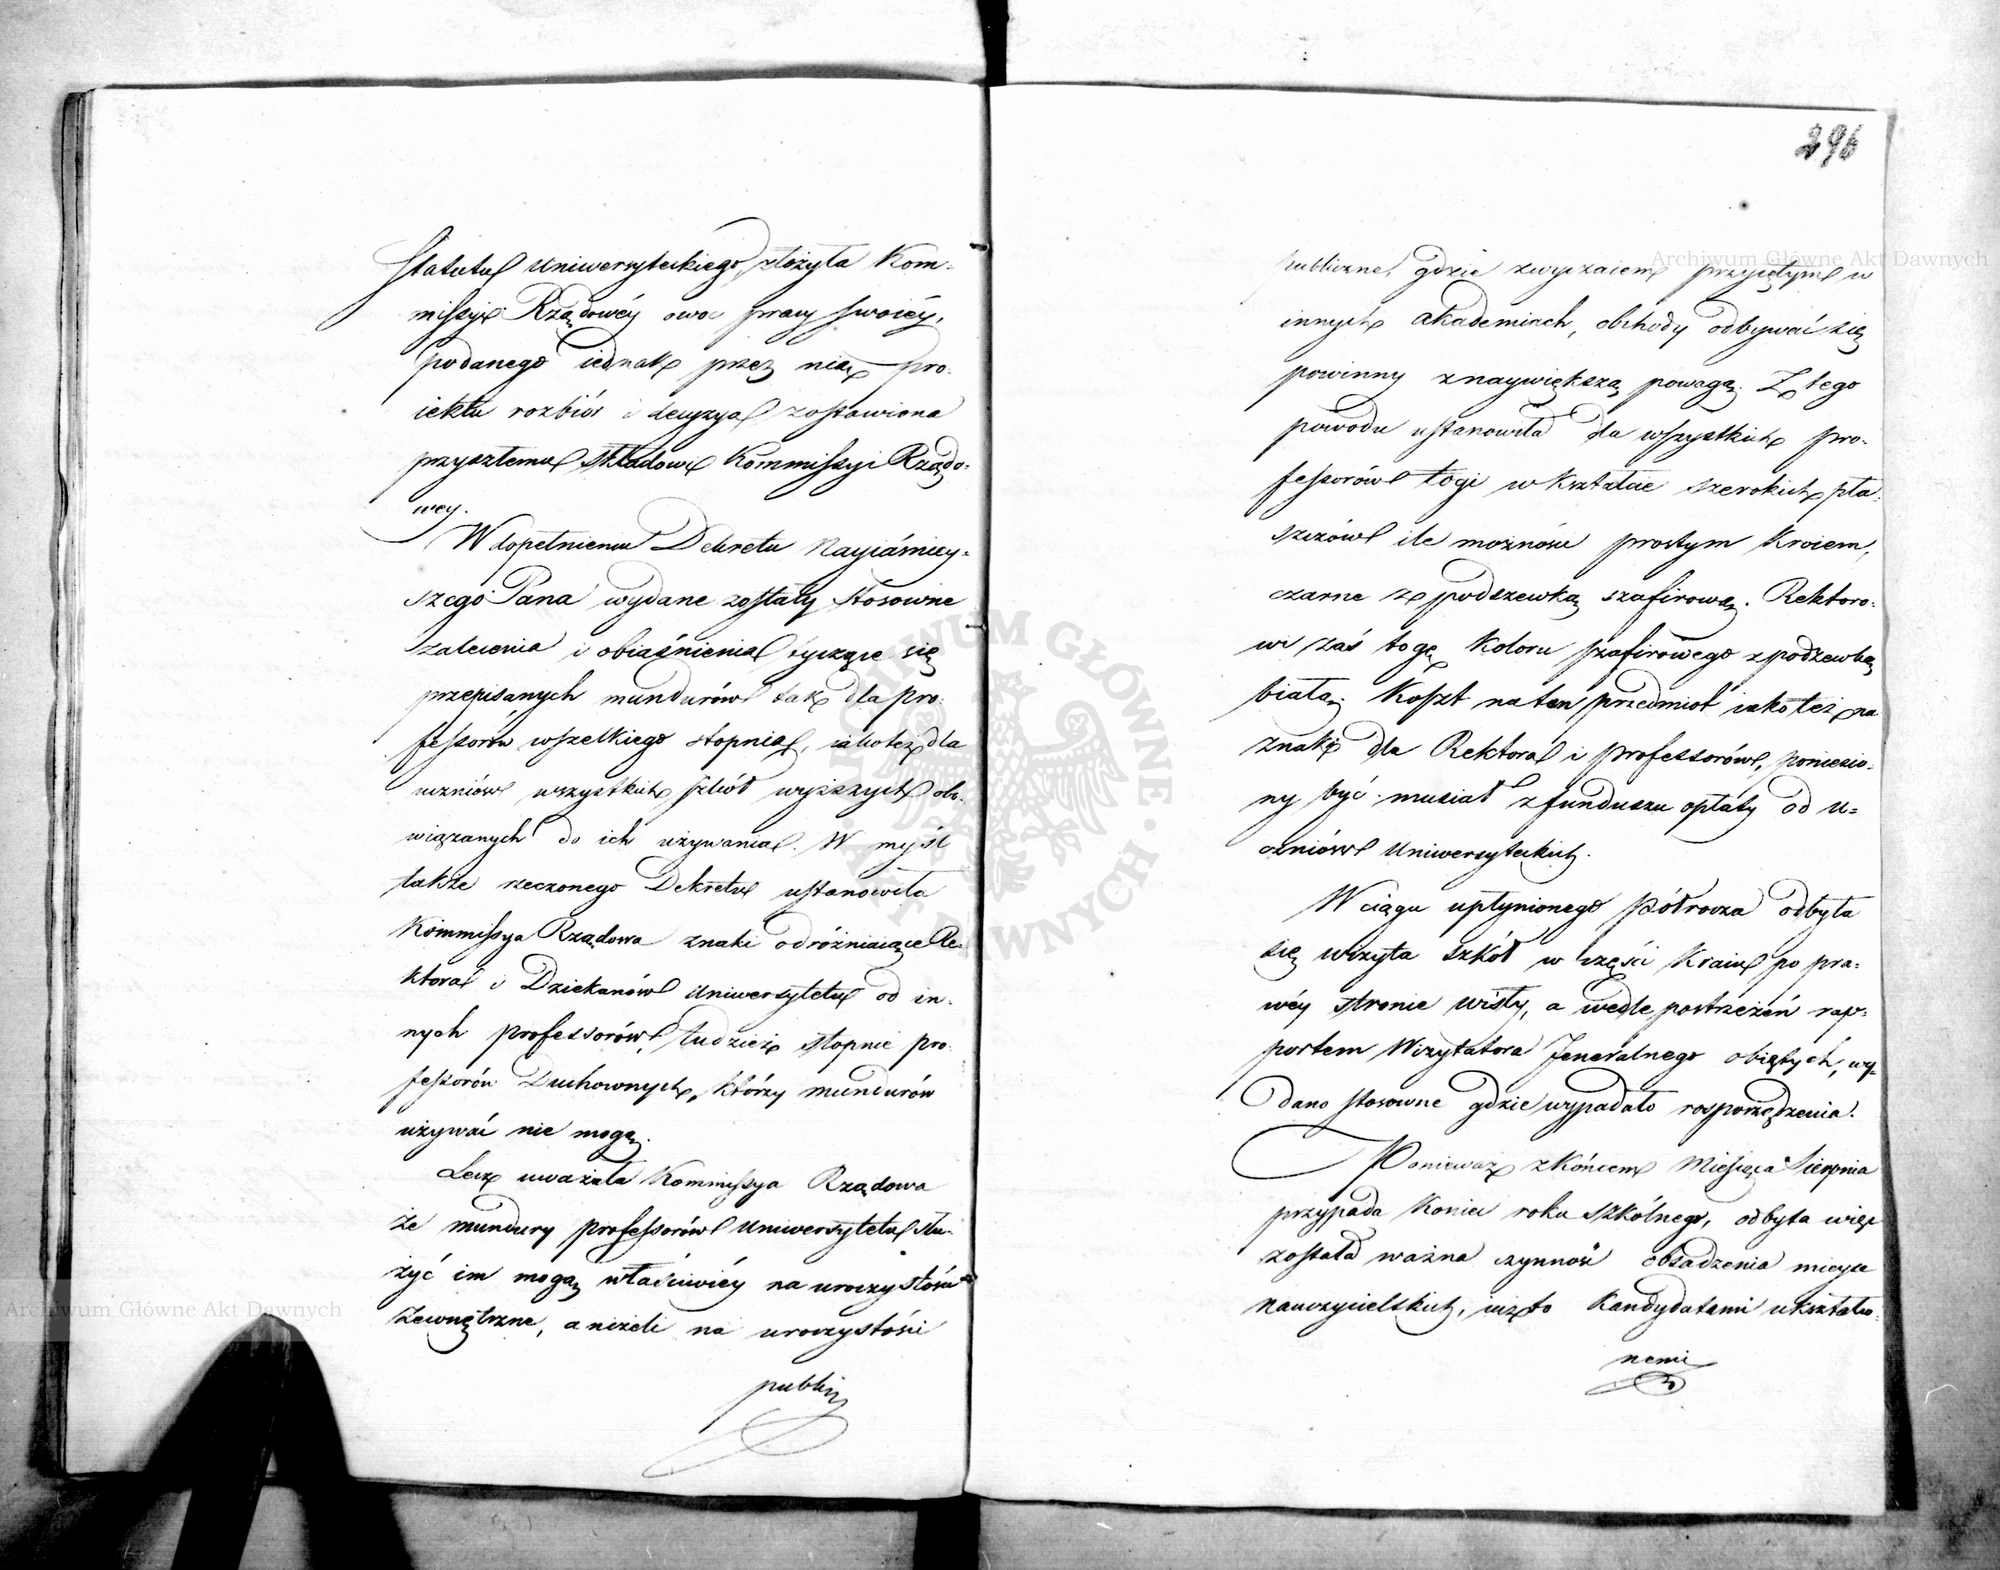 Statutu Uniwersyteckiego, złożyła Kom-
missyi Rządowéy owoc pracy swoiéy,
podanego iednak przez nią pro-
iektu rozbiór i decyzya zostawiona
przyszłemu składowi Kommissyi Rządo-
wey.
W dopełnieniu Dekretu Nayiaśniey-
szego Pana wydane zostały stosowne
zalecenia i obiaśnienia tyczące się
przepisanych mundurów tak dla pro-
fessorów wszelkiego stopnia, iakoteż dla
uczniów wszystkich szkół wyższych obo-
wiązanych do ich używania. W myśl
także rzeczonego Dekretu ustanowiła
Kommissya Rządowa znaki odróżniaiące Re-
ktora i Dziekanów Uniwersytetu od in-
nych professorów, tudzież stopnie pro-
fessorów Duchownych, którzy mundurów
używać nie mogą.
Lecz uważała Kommissya Rządowa
że mundury professorów Uniwersytetu słu-
żyć im mogą właściwiéy na uroczystości
zewnętrzne, aniżeli na uroczystości
publicz
296
publiczne, gdzie zwyczaiem przyiętym w
innych akademiach, obchody odbywać się
powinny z naywiększą powagą. Z tego
powodu ustanowiła dla wszystkich pro-
fessorów togi w kształcie szerokich pła-
szczów ile możności prostym kroiem,
czarne z podszewką szafirową. Rektoro-
wi zaś togę koloru szafirowego z podszewką
białą. Koszt na ten przedmiot iako też na
znaki dla Rektora i professorów, poniesio-
ny być musiał z funduszu opłaty od u-
czniów Uniwersyteckich.
W ciągu upłynionego półrocza odbyła
się wizyta szkół w części Kraiu po pra-
wéy stronie wisły, a wedle postrzeżeń rap-
portem Wizytatora Jeneralnego obiętych, wy-
dano stosowne gdzie wypadało rosporządzenia.
Ponieważ z końcem Miesiąca Sierpnia
przypada koniec roku szkólnego, odbyta więc
została ważna czynność obsadzenia mieysc
nauczycielskich, iuż to kandydatami ukształco-
nemi
Archiwum Główne Akt Dawnych
Archiwum Główne Akt Dawnych
Archiwum Główne Akt Dawnych
ARCHIWUM GŁÓWNE AKT DAWNYCH